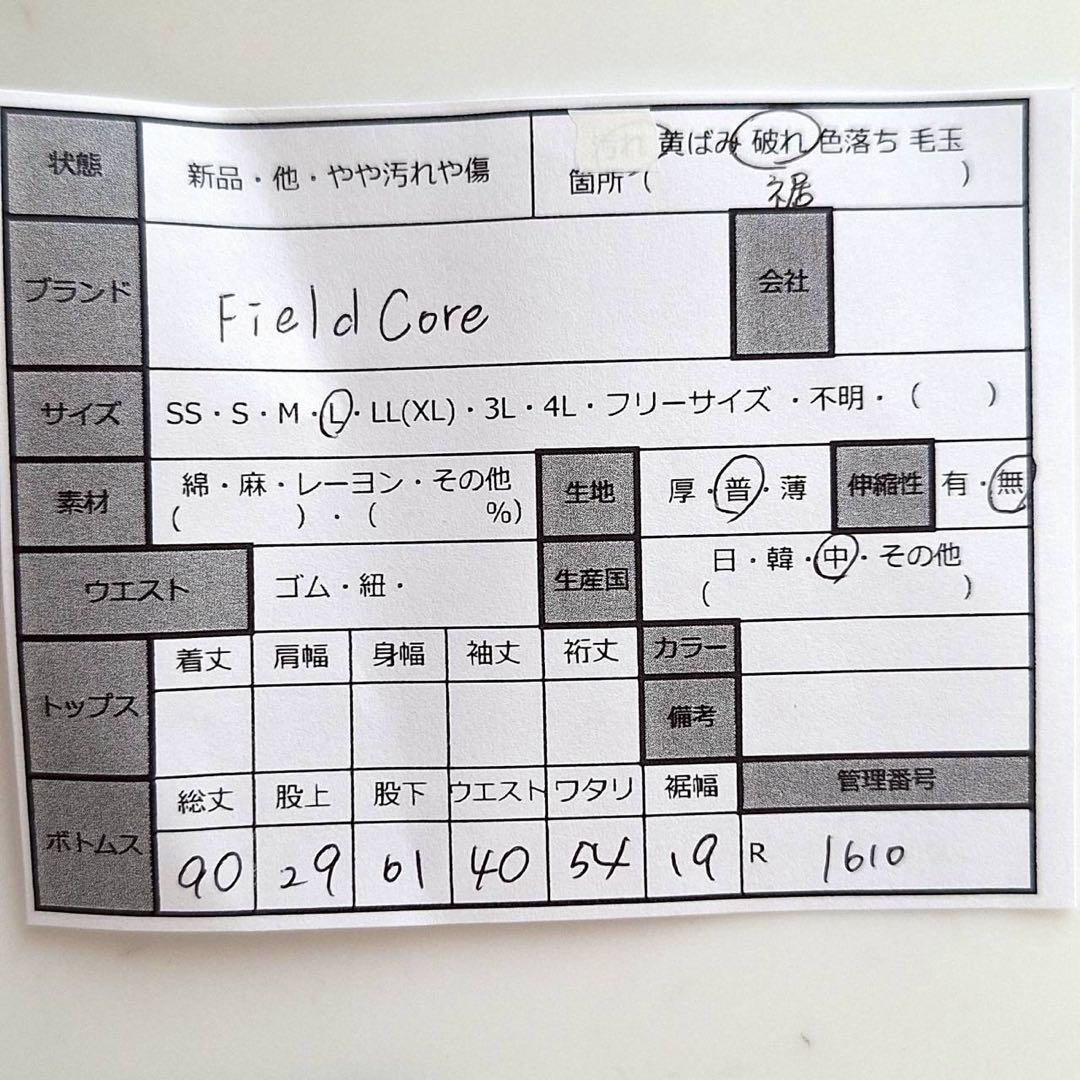 状態
新品・他・やや汚れや傷
汚れ 黄ばみ 破れ 色落ち 毛玉
箇所 ( 裾 )
ブランド
Field Core
会社
サイズ
SS・S・M・L・LL(XL)・3L・4L・フリーサイズ ・不明・ ( )
素材
綿・麻・レーヨン・その他
( ) ・ ( %)
生地
厚・普・薄
伸縮性
有・無
ウエスト
ゴム・紐・
生産国
日・韓・中・その他
( )
トップス
着丈 肩幅 身幅 袖丈 裄丈
カラー
備考
ボトムス
総丈 股上 股下 ウエスト ワタリ 裾幅
管理番号
90 29 61 40 54 19
R 1610